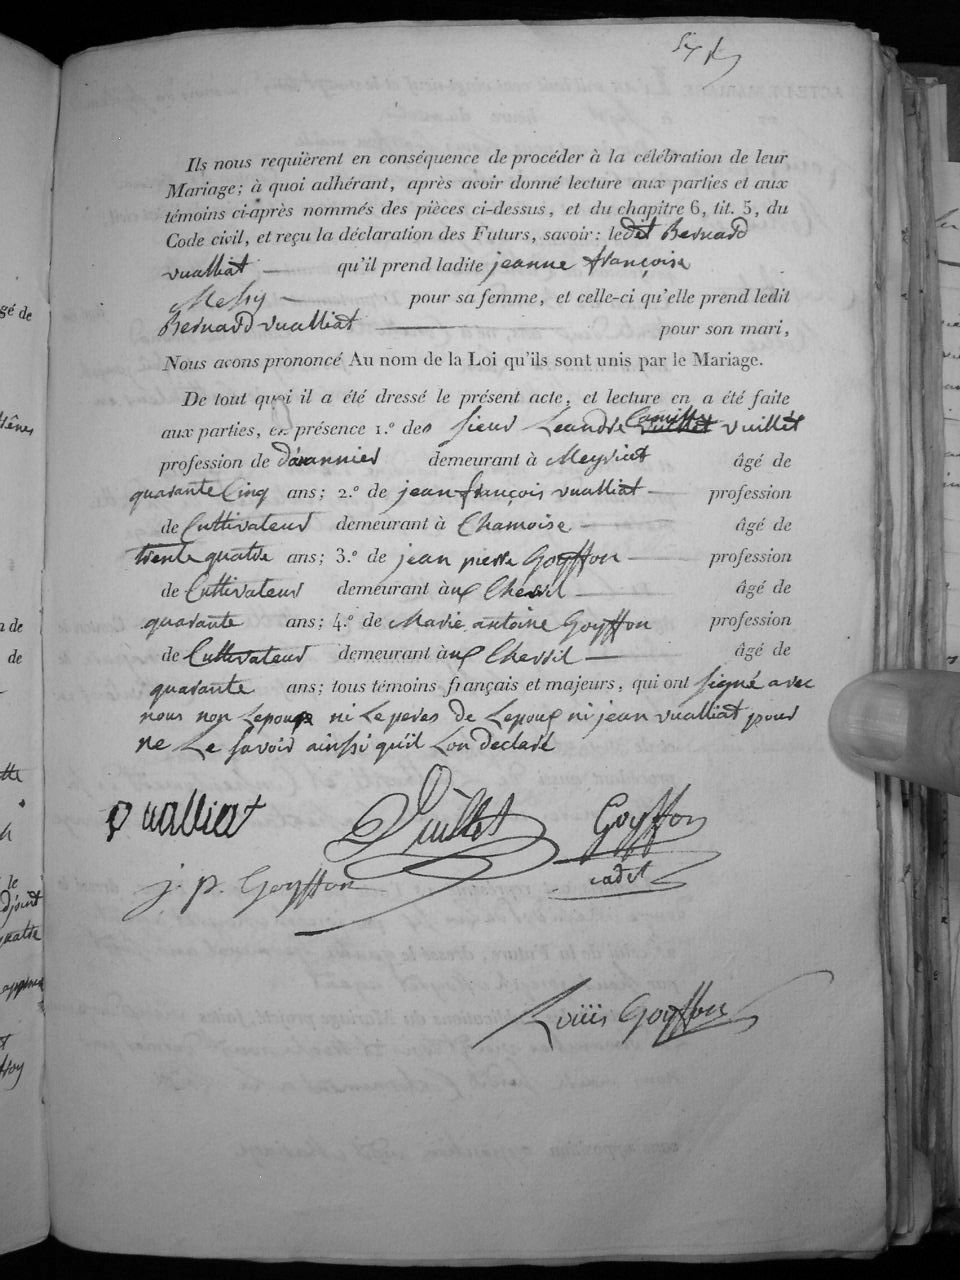 Six
Ils nous requièrent en conséquence de procéder à la célébration de leur
Mariage; à quoi adhérant, après avoir donné lecture aux parties et aux
témoins ci-après nommés des pièces ci-dessus, et du chapitre 6, tit. 5, du
Code civil, et reçu la déclaration des Futurs, savoir: le dit Bernard
vualliat — qu'il prend ladite jeanne françoise
Messy — pour sa femme, et celle-ci qu'elle prend ledit
Bernard vualliat — pour son mari,
Nous avons prononcé Au nom de la Loi qu'ils sont unis par le Mariage.
De tout quoi il a été dressé le présent acte, et lecture en a été faite
aux parties, en présence 1.º des sieur Leandre Camille vuillet
profession de demeurant à Meyriat âgé de
quarante Cinq ans; 2.º de jean françois vualliat — profession
de Cultivateur demeurant à Chamoise — âgé de
trente quatre ans; 3.º de jean pierre Goyffon — profession
de Cultivateur demeurant à — âgé de
quarante ans; 4.º de Marie antoine Goyffon profession
de Cultivateur demeurant à — âgé de
quarante ans; tous témoins français et majeurs, qui ont signé avec
nous non Lepouse ni Le peres de Lepoux ni jean vualliat pour
ne Le savoir ainssi quil Lon declaré
vualliat Vuillet Goyffon
cadet
j. p. Goyffon
Loüis Goyffon
gé de
de
de
le
adjoint